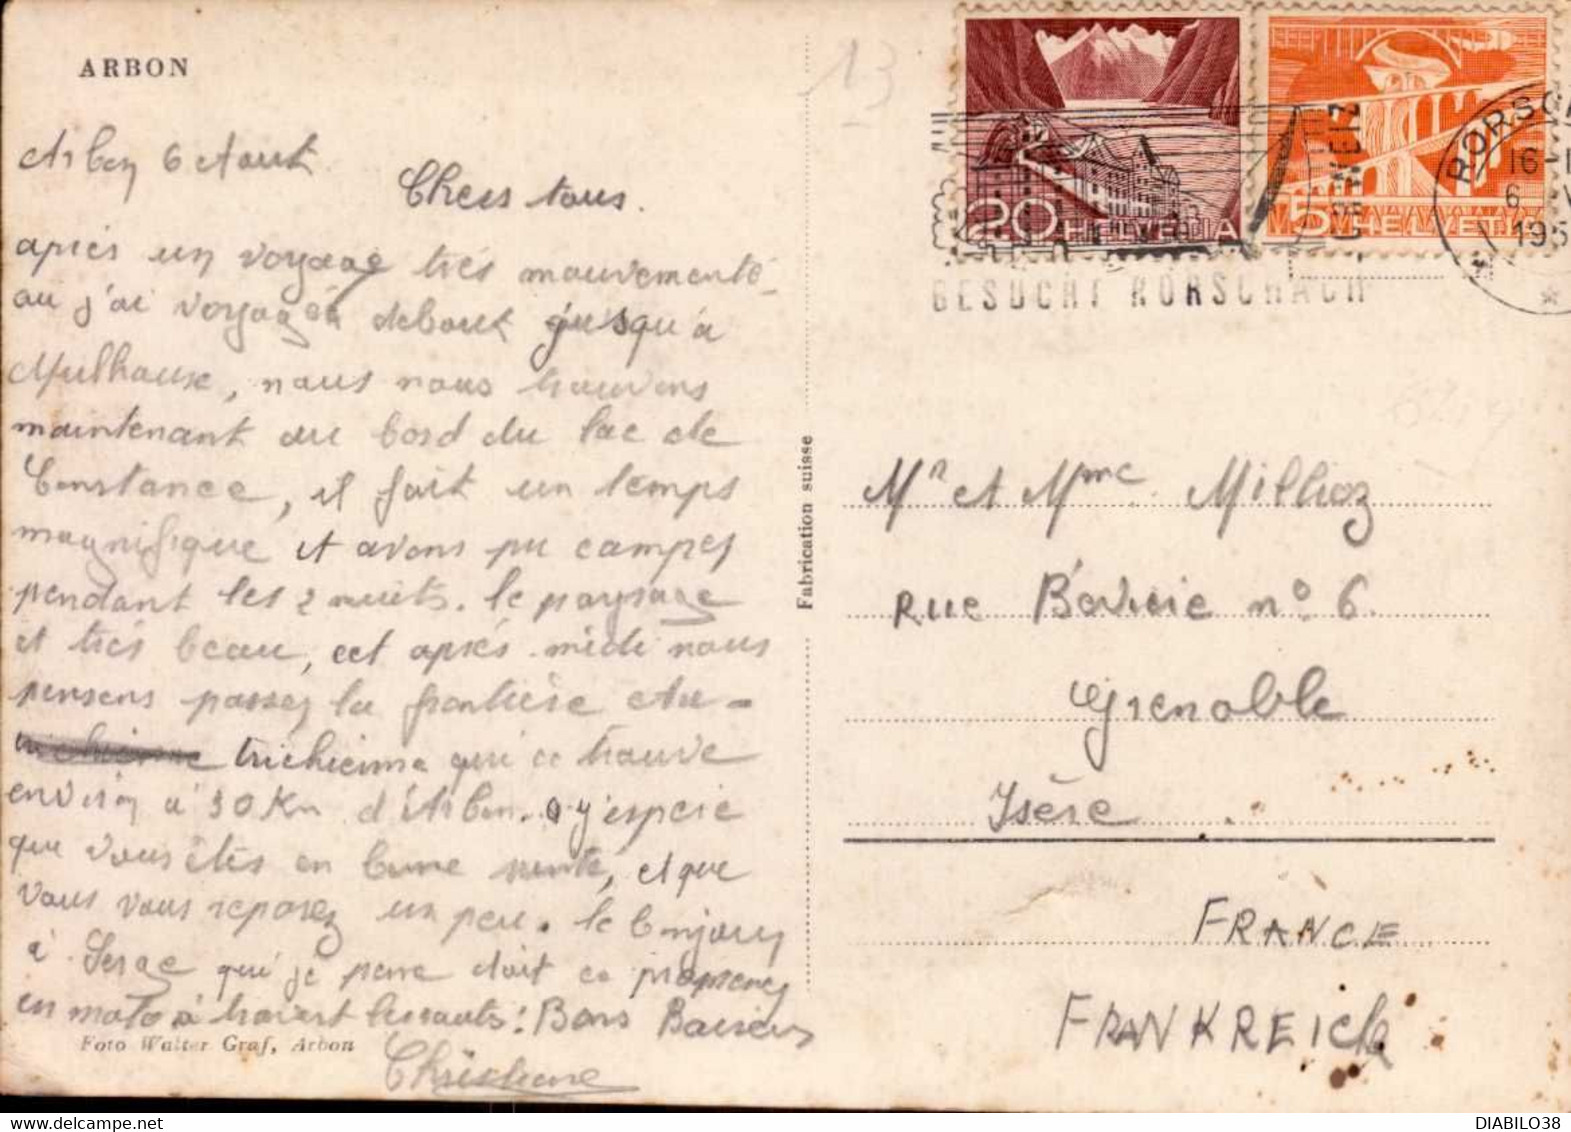 ARBON
Arbon 6 Aout
Chers tous.
après un voyage très mouvementé
ou j'ai voyagér debout jusqu'à
Mulhouse, nous nous trouvons
maintenant au bord du lac de
Constance, il fait un temps
magnifique et avons pu camper
pendant les 2 nuits. le paysage
et très beau, cet après-midi nous
pensons passer la frontière Au-
trichienne qui ce trouve
environ à 30 Km d'Arbon. j'espère
que vous êtes en bonne santé, et que
vous vous reposez un peu. le bonjour
à Serge qui je pense doit ce promener
en moto à travert les routes! Bons Baisers
Foto Walter Graf, Arbon
Christiane
Fabrication suisse
13
20 HELVETIA
5 HELVETIA
SCHWEIZ
BESUCHT RORSCHACH
RORSCH
16-1
6
195
Mr et Mme Millioz
rue Bovier n° 6
Grenoble
Isère
FRANCE
FRANKREICh
DIABILO38